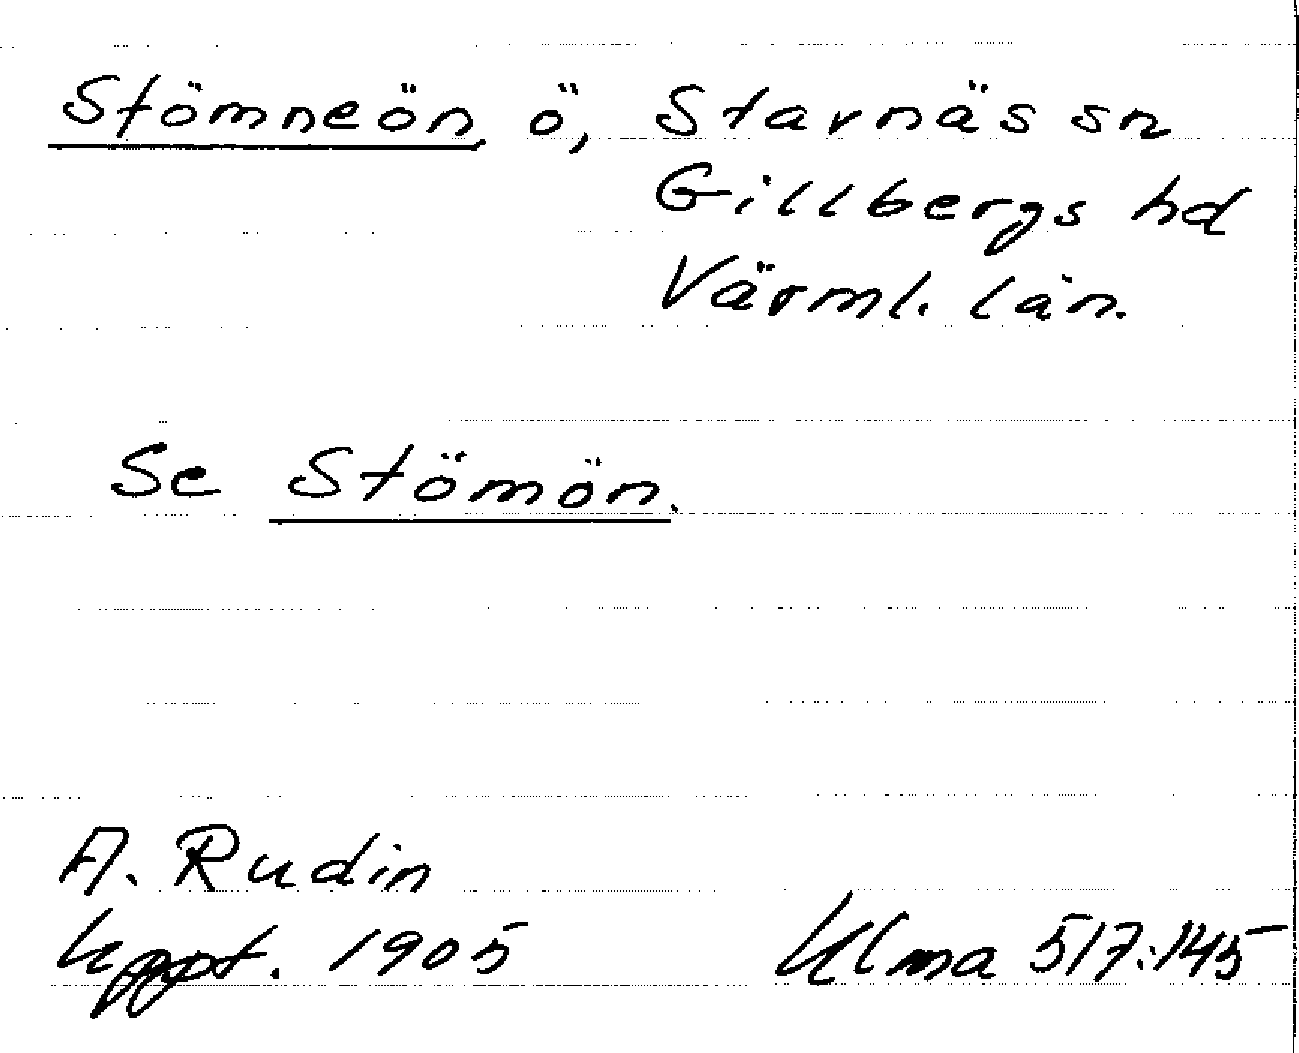 Stömneön, ö, Stavnäs sn
Gillbergs hd
Värml. län.
Se Stömön.
A. Rudin
Uppt. 1905
Ulma 517:145